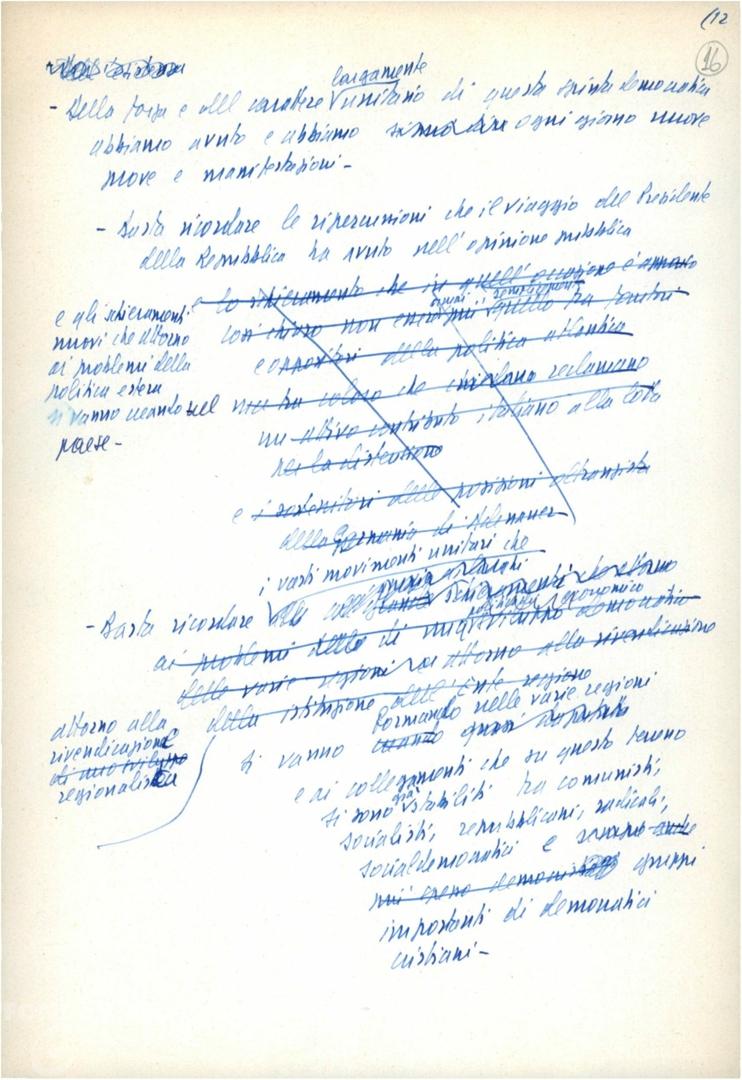 (12
16
largamente
- Della forza e del carattere unitario di questa spinta democratica
abbiamo avuto e abbiamo ogni giorno nuove
prove e manifestazioni -
- Basta ricordare le ripercussioni che il viaggio del Presidente
della Repubblica ha avuto nell'opinione pubblica
e gli schieramenti
nuovi che attorno
ai problemi della
politica estera
si vanno creando nel
paese -
e lo schieramento che in quell'occasione è apparso
così chiaro non era più quello tra fautori
e oppositori della politica atlantica
ma tra coloro che reclamano
un attivo contributo italiano alla lotta
per la distensione
e i sostenitori delle posizioni oltranziste
della Germania di Adenauer
i vasti movimenti unitari che
- Basta ricordare schieramenti che attorno
economico
ai problemi dello di democratico
delle varie regioni attorno alla rivendicazione
della istituzione dell'Ente regione
attorno alla
rivendicazione
di uno sviluppo
regionalista
formando nelle varie regioni
si vanno creando
e ai collegamenti che su questo terreno
si sono già stabiliti tra comunisti,
socialisti, repubblicani, radicali,
socialdemocratici e
gruppi
importanti di democratici
cristiani -